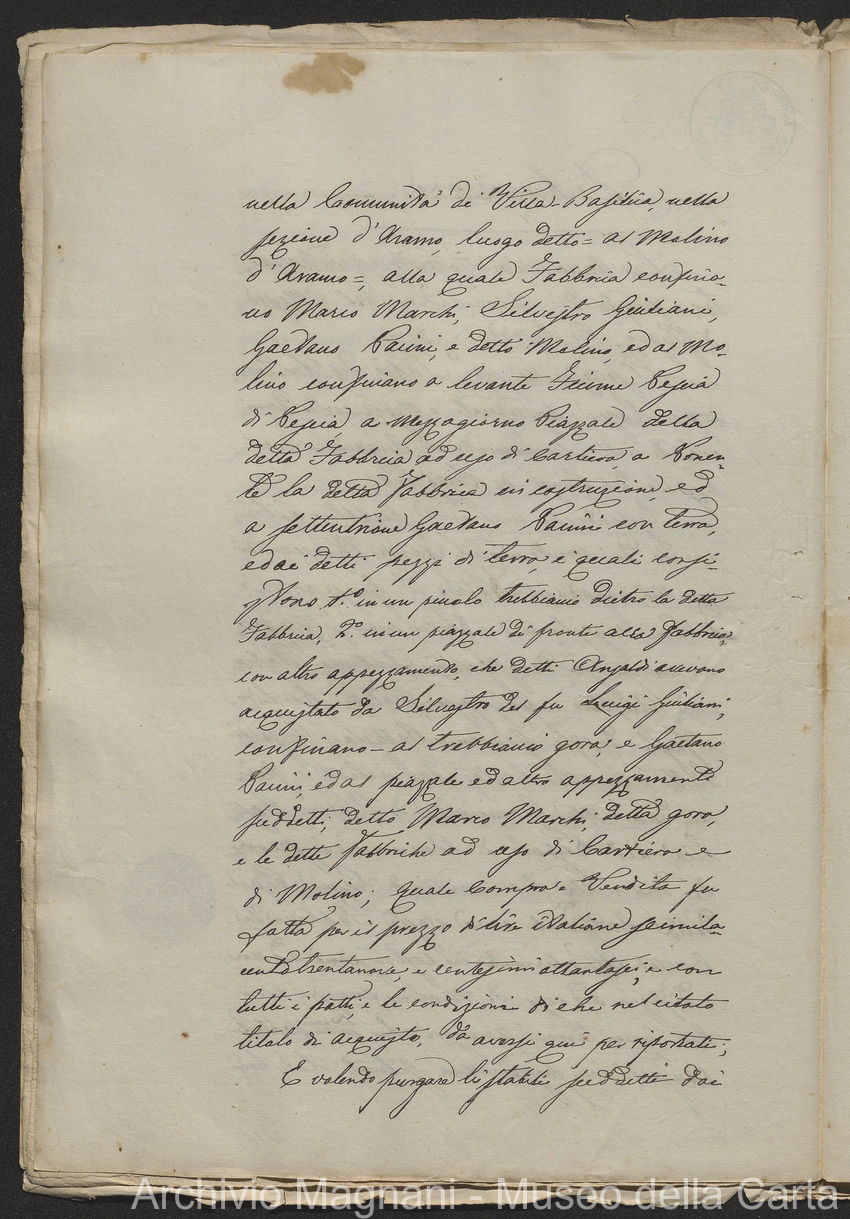 nella Comunità di Villa-Basilica, nella
sezione d'Aramo, luogo detto = al Molino
d'Aramo =, alla quale Fabbrica confina-
no Marco Marchi, Silvestro Giuliani,
Gaetano Pacini, e detto Molino, ed al Mo-
lino confinano a levante Fiume Pescia
di Pescia, a mezzogiorno Piazzale della
detta Fabbrica ad uso di Cartiera, a Ponen-
te la detta Fabbrica in costruzione, ed
a settentrione Gaetano Pacini con terra,
ed ai detti pezzi di terra i quali consi-
stono 1.º in un piccolo trebbiario dietro la detta
Fabbrica, 2.º in un piazzale di fronte alla Fabbrica
con altro appezzamento, che detti Ansaldi avevano
acquistato da Silvestro del fu Luigi Giuliani,
confinano - al trebbiario gora, e Gaetano
Pacini, ed al piazzale ed altro appezzamento
suddetti, detto Marco Marchi, detta gora,
e le dette Fabbriche ad uso di Cartiera e
di Molino; quale Compra e Vendita fu
fatta per il prezzo di lire italiane seimila-
centotrentanove, e centesimi ottantasei, e con
tutti i patti, e le condizioni di che nel citato
titolo di acquisto, da aversi qui per riportati;
E volendo purgare li stabili suddetti dai
Archivio Magnani - Museo della Carta